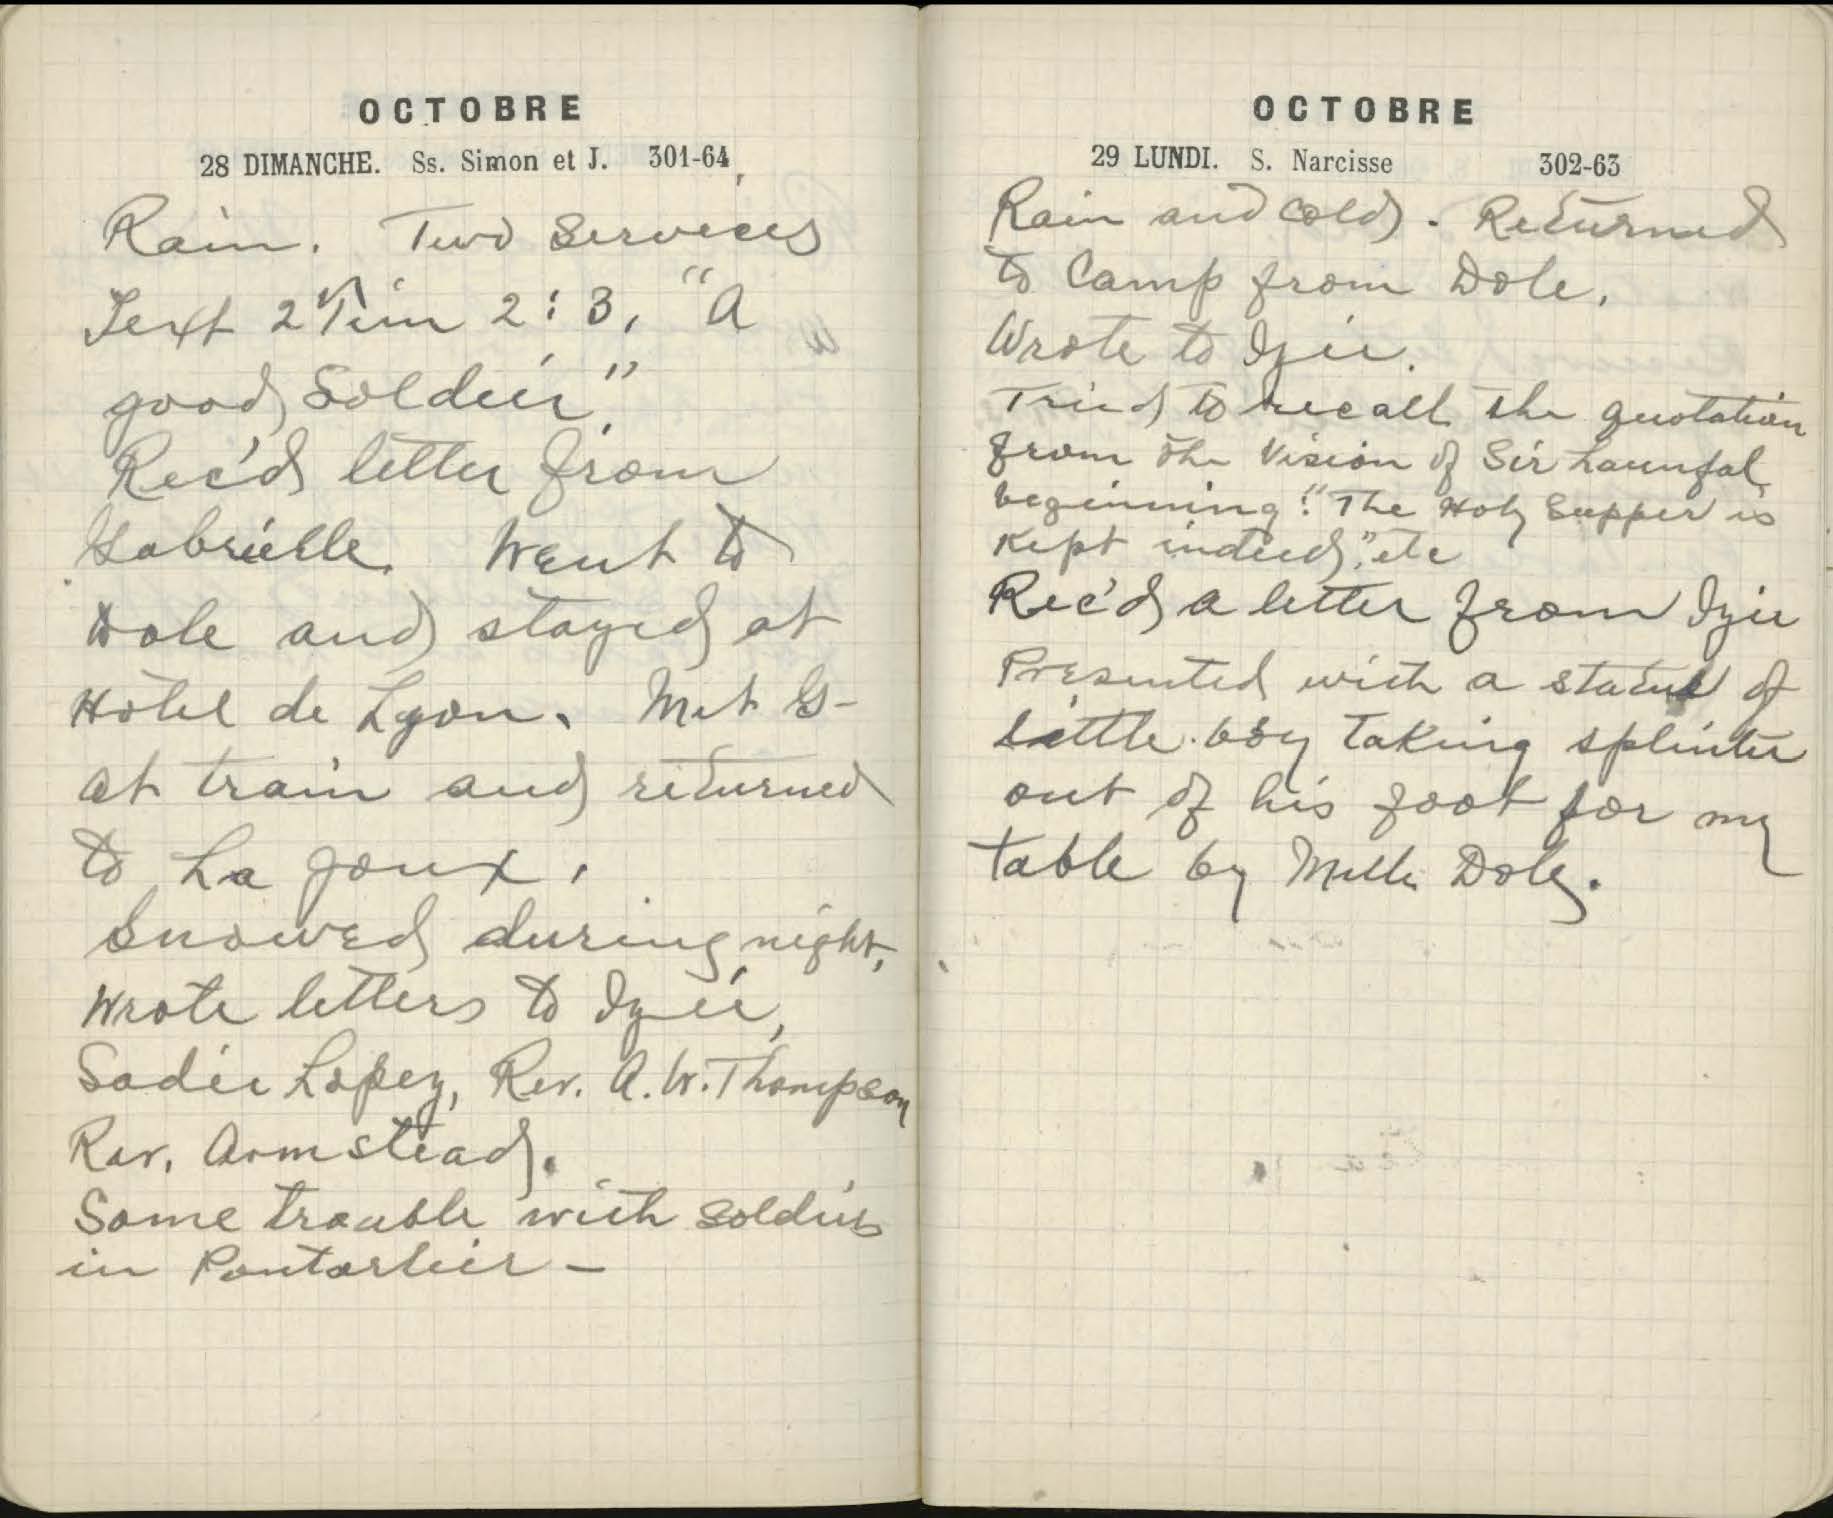 OCTOBRE
28 DIMANCHE. Ss. Simon et J. 301-64
Rain. Two Services
Text 2 Tim 2:3, "A
good Soldier".
Rec'd letter from
Gabrielle. Went to
Dole and stayed at
Hotel de Lyon. Met G-
at train and returned
to La Joux.
Snowed during night,
Wrote letters to Izie,
Sadie Lopez, Rev. A. W. Thompson
Rev. Armstead.
Some trouble with soldiers
in Pontarlier -
OCTOBRE
29 LUNDI. S. Narcisse 302-63
Rain and cold. Returned
to Camp from Dole.
Wrote to Izie.
Tried to recall the quotation
from the Vision of Sir Launfal
beginning: "The Holy Supper is
kept indeed," etc
Rec'd a letter from Izie
Presented with a statue of
little boy taking splinter
out of his foot for my
table by Mlle Doly.